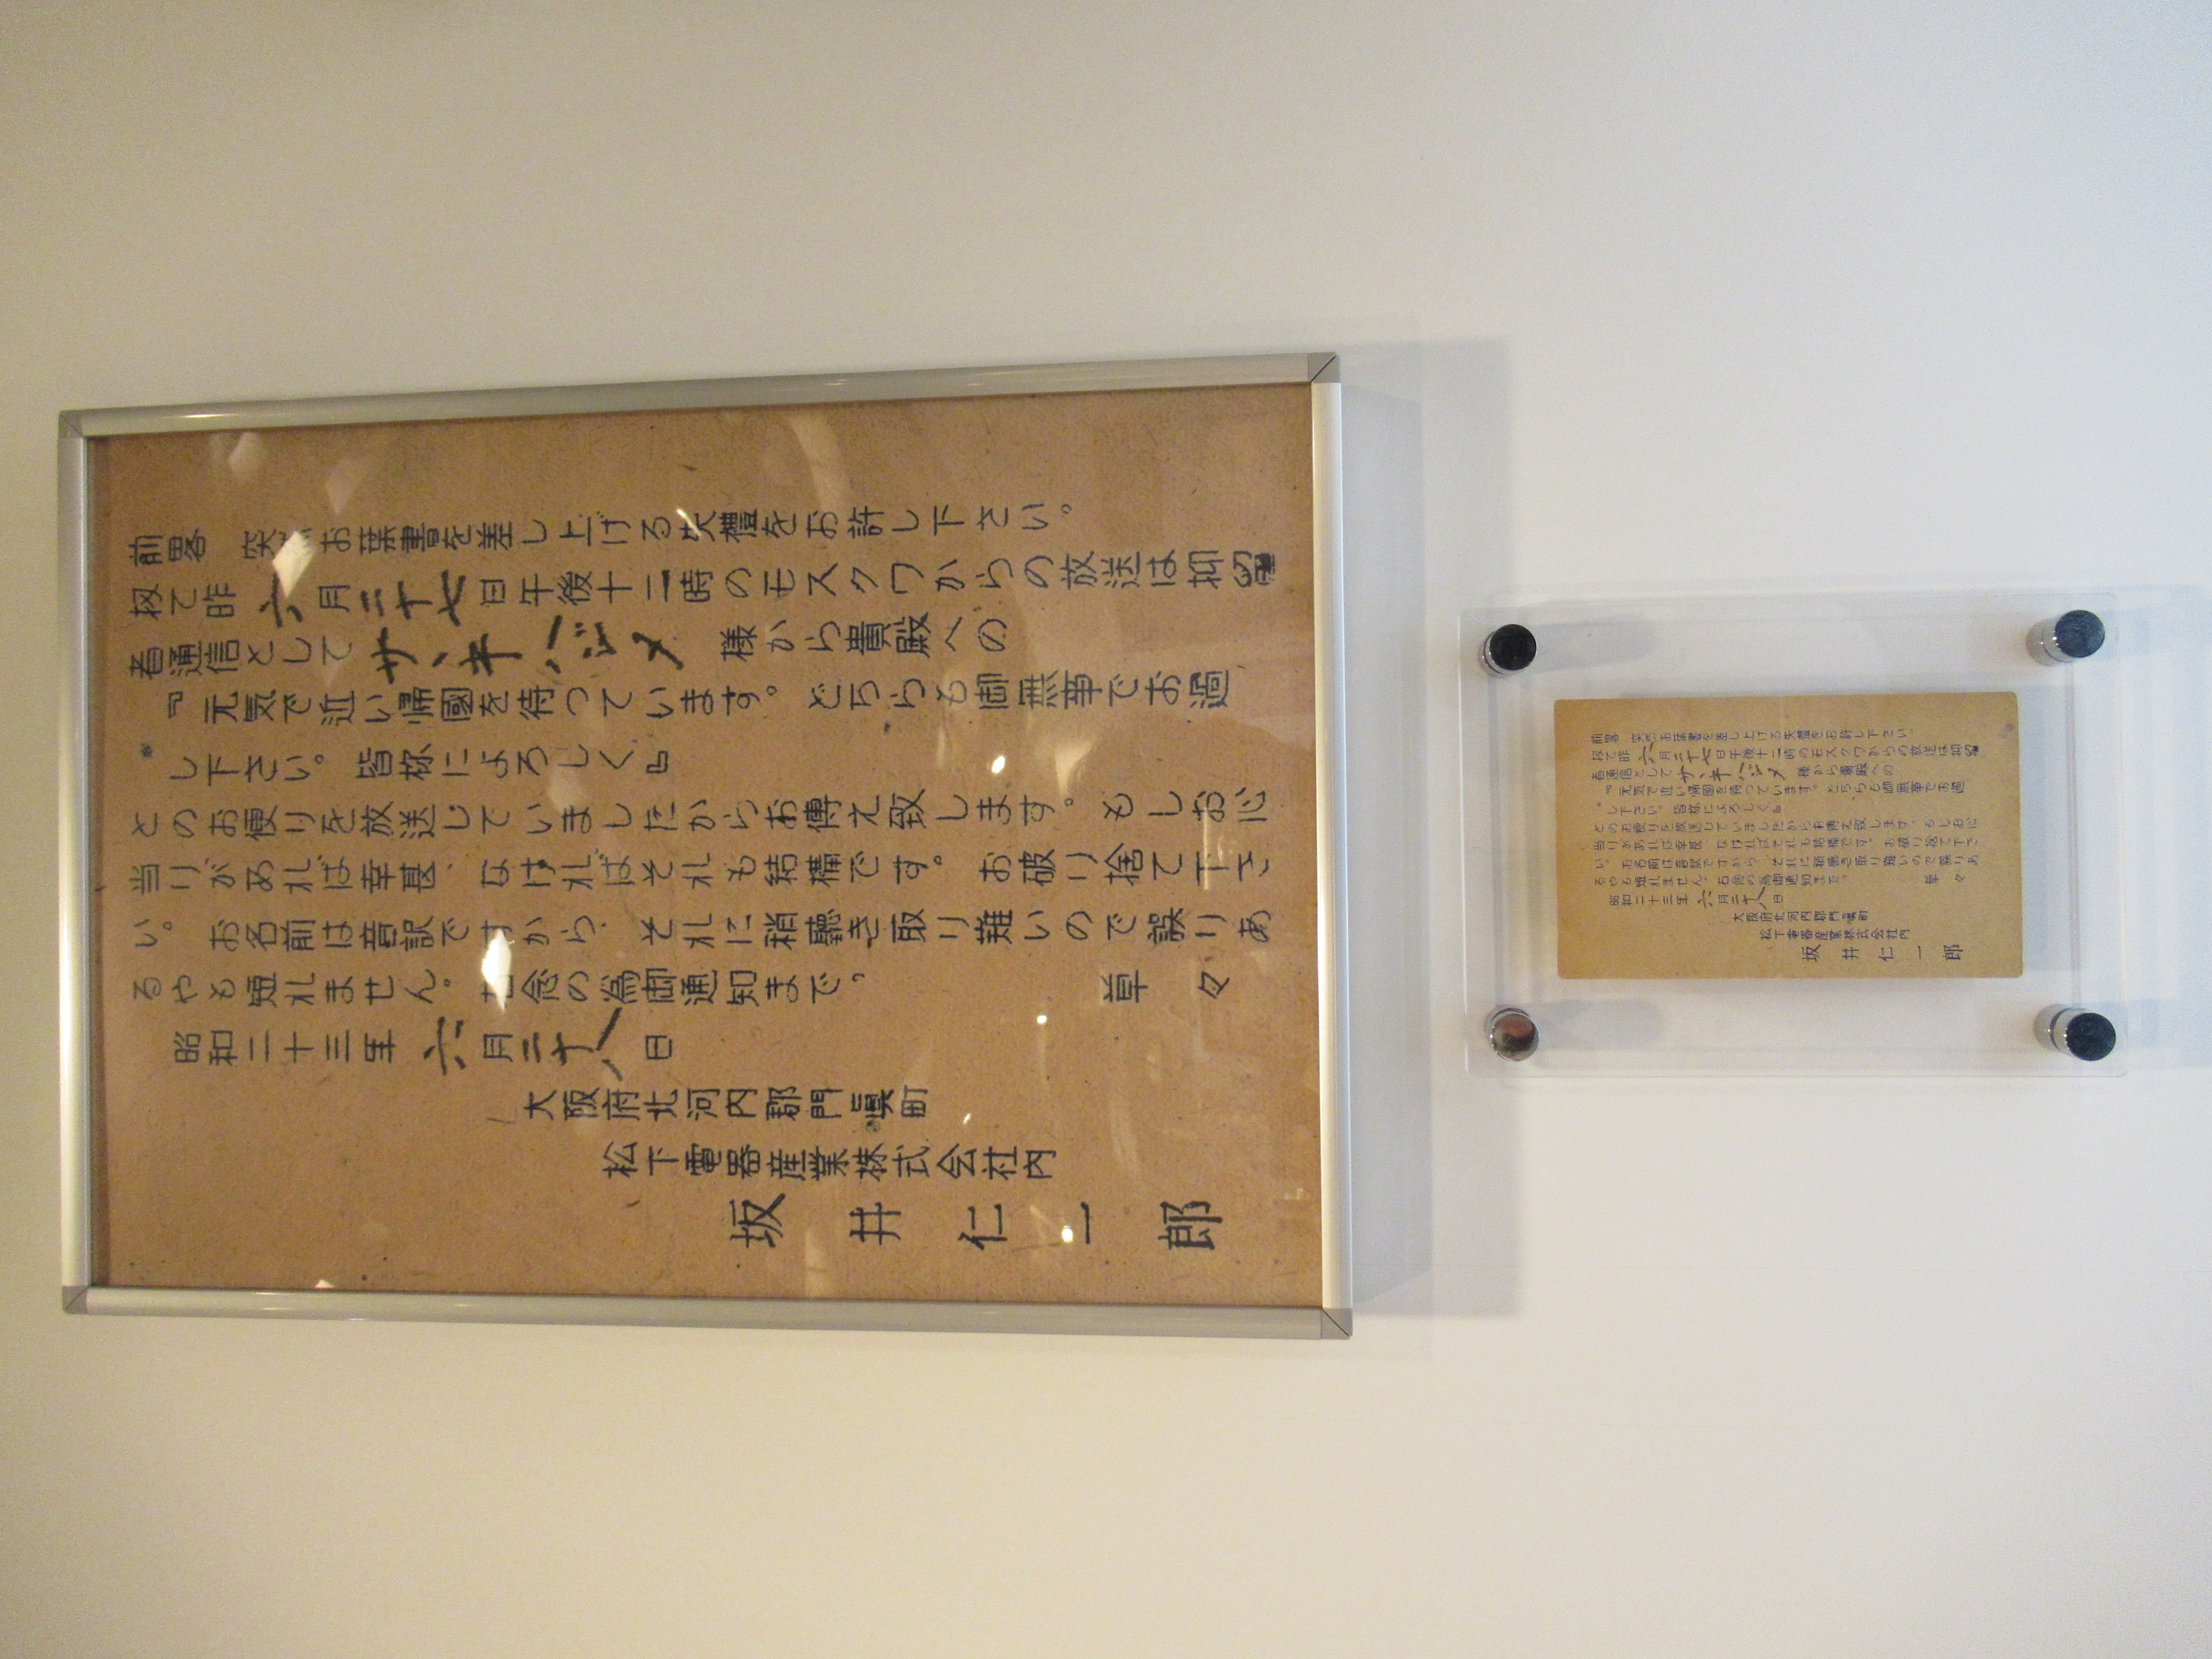 前畧　突然お葉書を差し上げる失禮をお許し下さい。
扨て昨六月二十七日午後十二時のモスクワからの放送は抑留
者通信としてサヽキハジメ様から貴殿への
『元気で近い帰國を待つています。どちらも御無事でお過
し下さい。皆様によろしく』
とのお便りを放送していましたからお傳え致します。もしお心
当りがあれば幸甚、なければそれも結構です。お破り捨て下さ
い。お名前は音訳ですから、それに稍聽き取り難いので誤りあ
るやも知れません。右念の為御通知まで。　草々
昭和二十三年六月二十八日
大阪府北河内郡門眞町
松下電器産業株式会社内
坂井仁一郎
前畧　突然お葉書を差し上げる失禮をお許し下さい。
扨て昨六月二十七日午後十二時のモスクワからの放送は抑留
者通信としてサヽキハジメ様から貴殿への
『元気で近い帰國を待つています。どちらも御無事でお過
し下さい。皆様によろしく』
とのお便りを放送していましたからお傳え致します。もしお心
当りがあれば幸甚、なければそれも結構です。お破り捨て下さ
い。お名前は音訳ですから、それに稍聽き取り難いので誤りあ
るやも知れません。右念の為御通知まで。　草々
昭和二十三年六月二十八日
大阪府北河内郡門眞町
松下電器産業株式会社内
坂井仁一郎